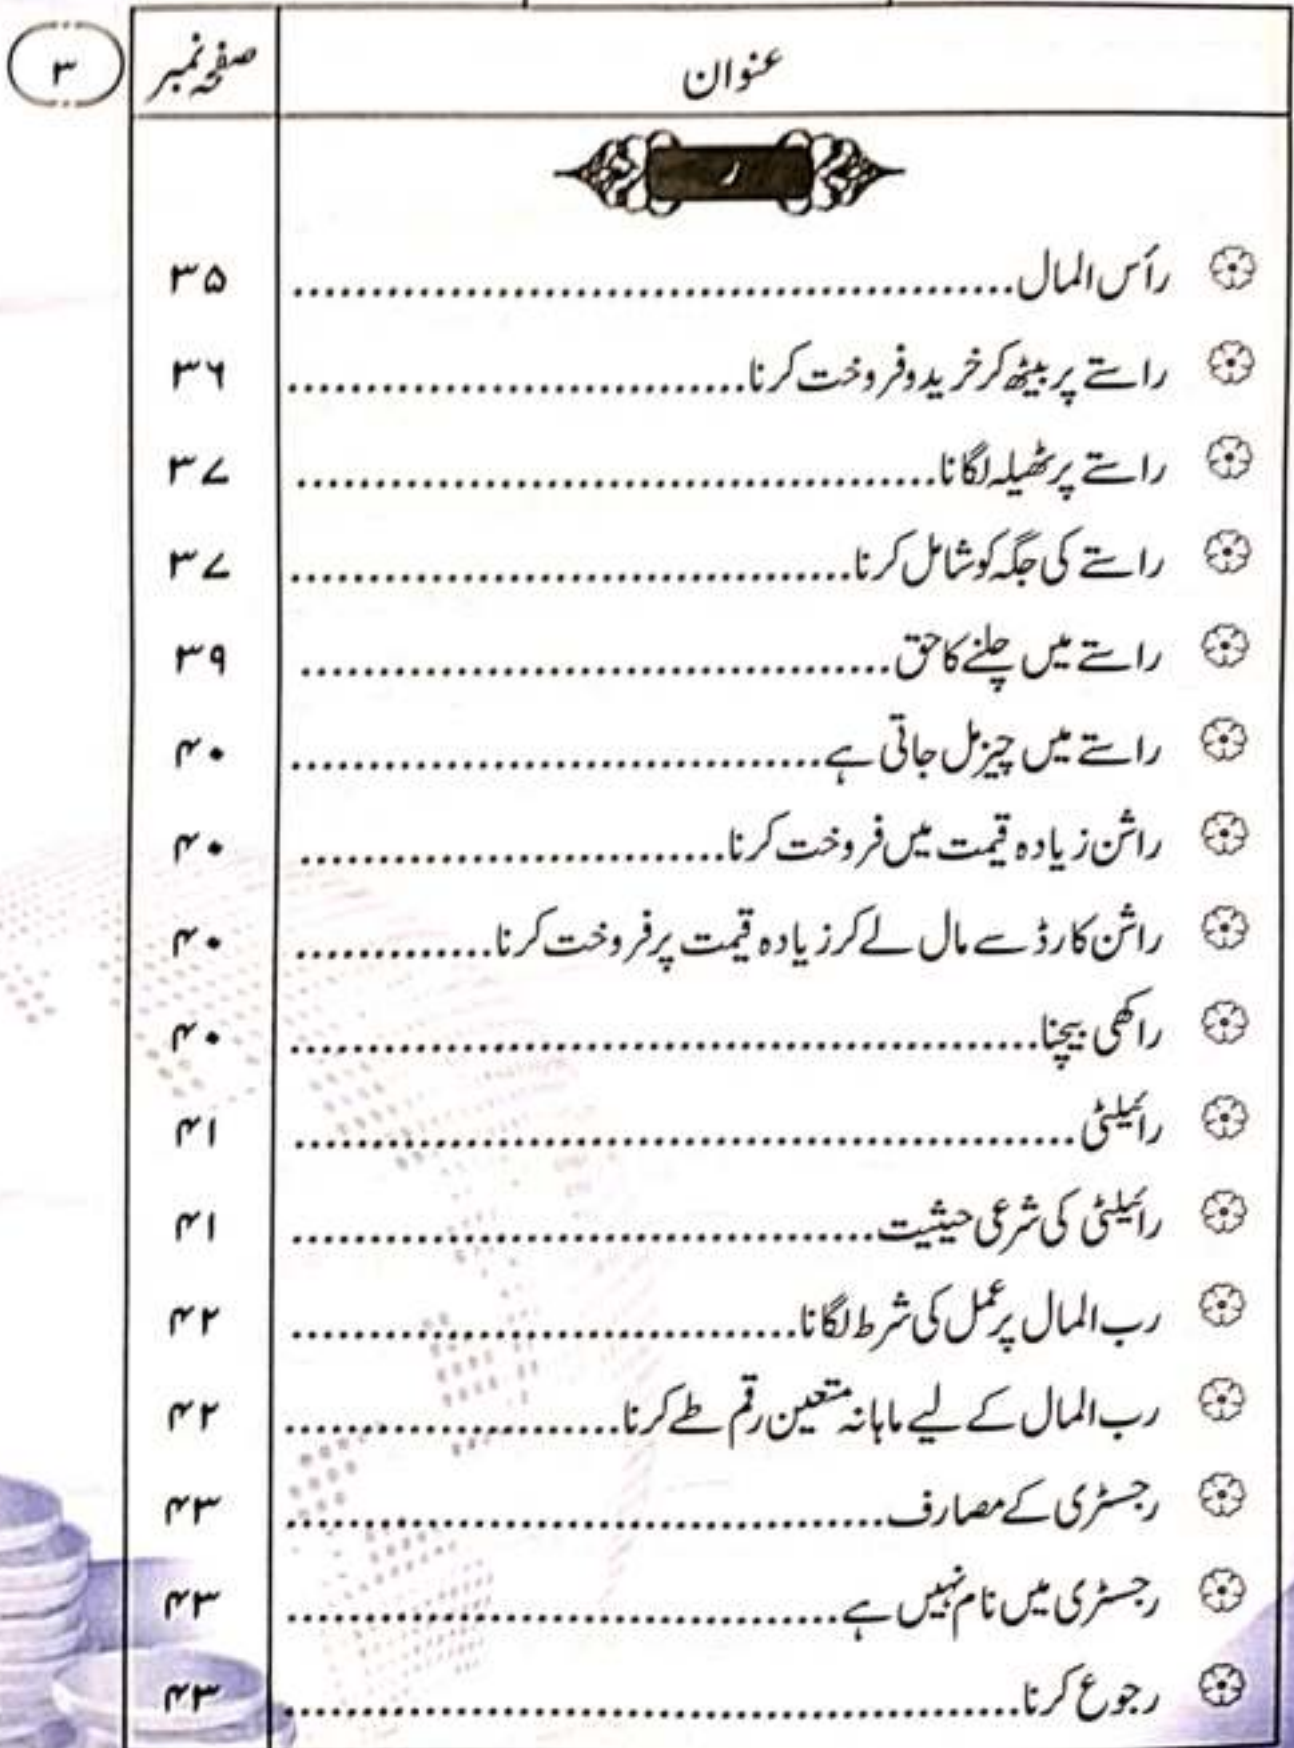 ۳
عنوان صفحہ نمبر
ر
رأس المال........................................ ۳۵
راستے پر بیٹھ کر خرید و فروخت کرنا........................................ ۳۶
راستے پر ٹھیلہ لگانا........................................ ۳۷
راستے کی جگہ کو شامل کرنا........................................ ۳۷
راستے میں چلنے کا حق........................................ ۳۹
راستے میں چیز مل جاتی ہے........................................ ۴۰
راشن زیادہ قیمت میں فروخت کرنا........................................ ۴۰
راشن کارڈ سے مال لے کر زیادہ قیمت پر فروخت کرنا............. ۴۰
راکھی بیچنا........................................ ۴۰
رائیلٹی........................................ ۴۱
رائیلٹی کی شرعی حیثیت........................................ ۴۱
رب المال پر عمل کی شرط لگانا........................................ ۴۲
رب المال کے لیے ماہانہ متعین رقم طے کرنا...................... ۴۲
رجسٹری کے مصارف........................................ ۴۳
رجسٹری میں نام نہیں ہے........................................ ۴۳
رجوع کرنا........................................ ۴۳